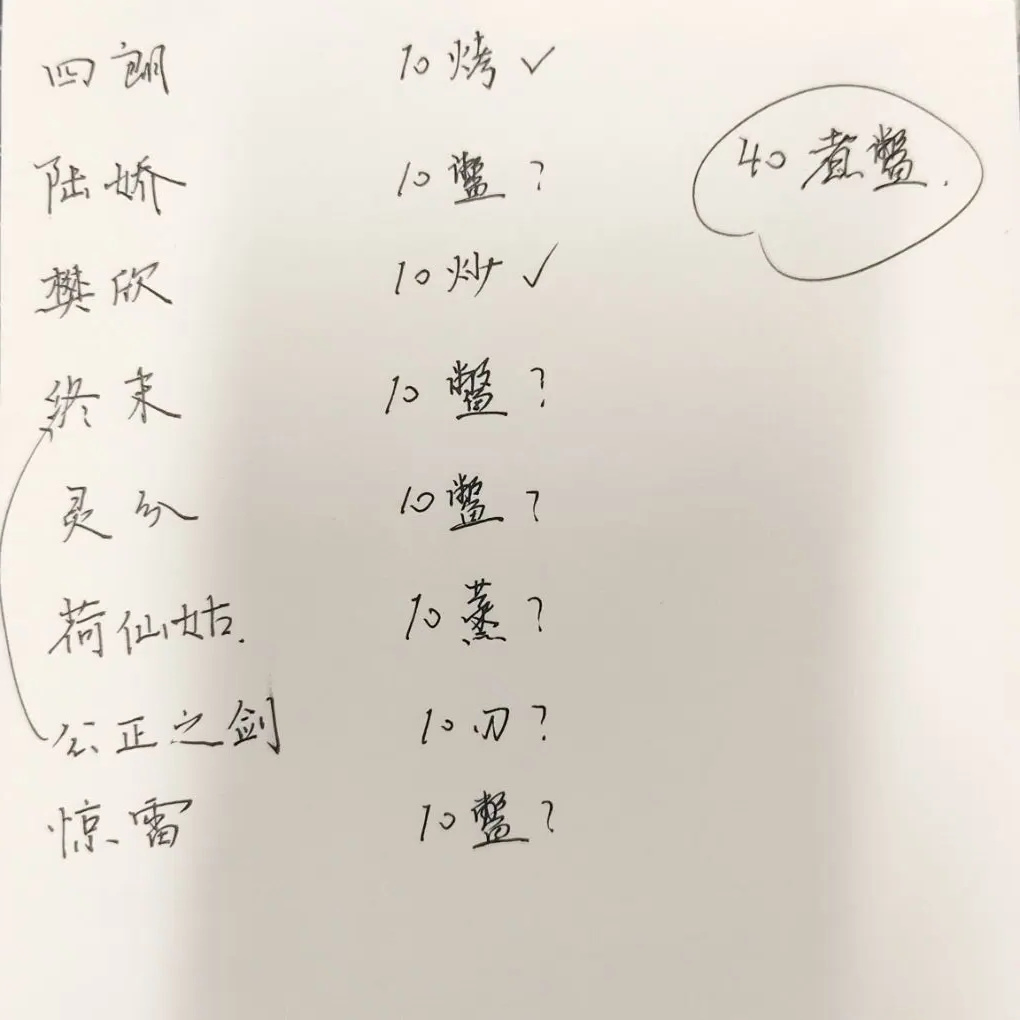 四郎 10烤✓
陆娇 10鳖?
40煮鳖.
樊欣 10炒✓
终末 10鳖?
灵分 10鳖?
荷仙姑. 10蒸?
公正之剑 10刃?
惊雷 10鳖?